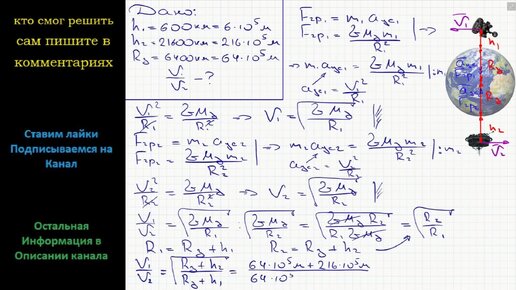 кто смог решить
сам пишите в
комментариях
Ставим лайки
Подписываемся на
Канал
Остальная
Информация в
Описании канала
Дано:
h₁ = 600км = 6·10⁵м
h₂ = 21600км = 216·10⁵м
Rз = 6400км = 64·10⁵м
V₁/V₂ - ?
Fгр₁ = m₁ aцс₁
Fгр₁ = GMз m₁/R₁²
=> m₁ aцс₁ = GMз m₁/R₁² |: m₁
aцс₁ = V₁²/R₁
V₁²/R₁ = GMз/R₁² => V₁ = √(GMз/R₁)
Fгр₂ = m₂ aцс₂
Fгр₂ = GMз m₂/R₂²
=> m₂ aцс₂ = GMз m₂/R₂² |: m₂
aцс₂ = V₂²/R₂
V₂²/R₂ = GMз/R₂² => V₂ = √(GMз/R₂)
V₁/V₂ = √(GMз/R₁) : √(GMз/R₂) = √(GMз R₂/GMз R₁) = √(R₂/R₁)
R₁ = Rз + h₁ R₂ = Rз + h₂
V₁/V₂ = √((Rз + h₂)/(Rз + h₁)) = (64·10⁵м + 216·10⁵м)/(64·10⁵
V₁
h₁
R₁
R₂
h₂
V₂